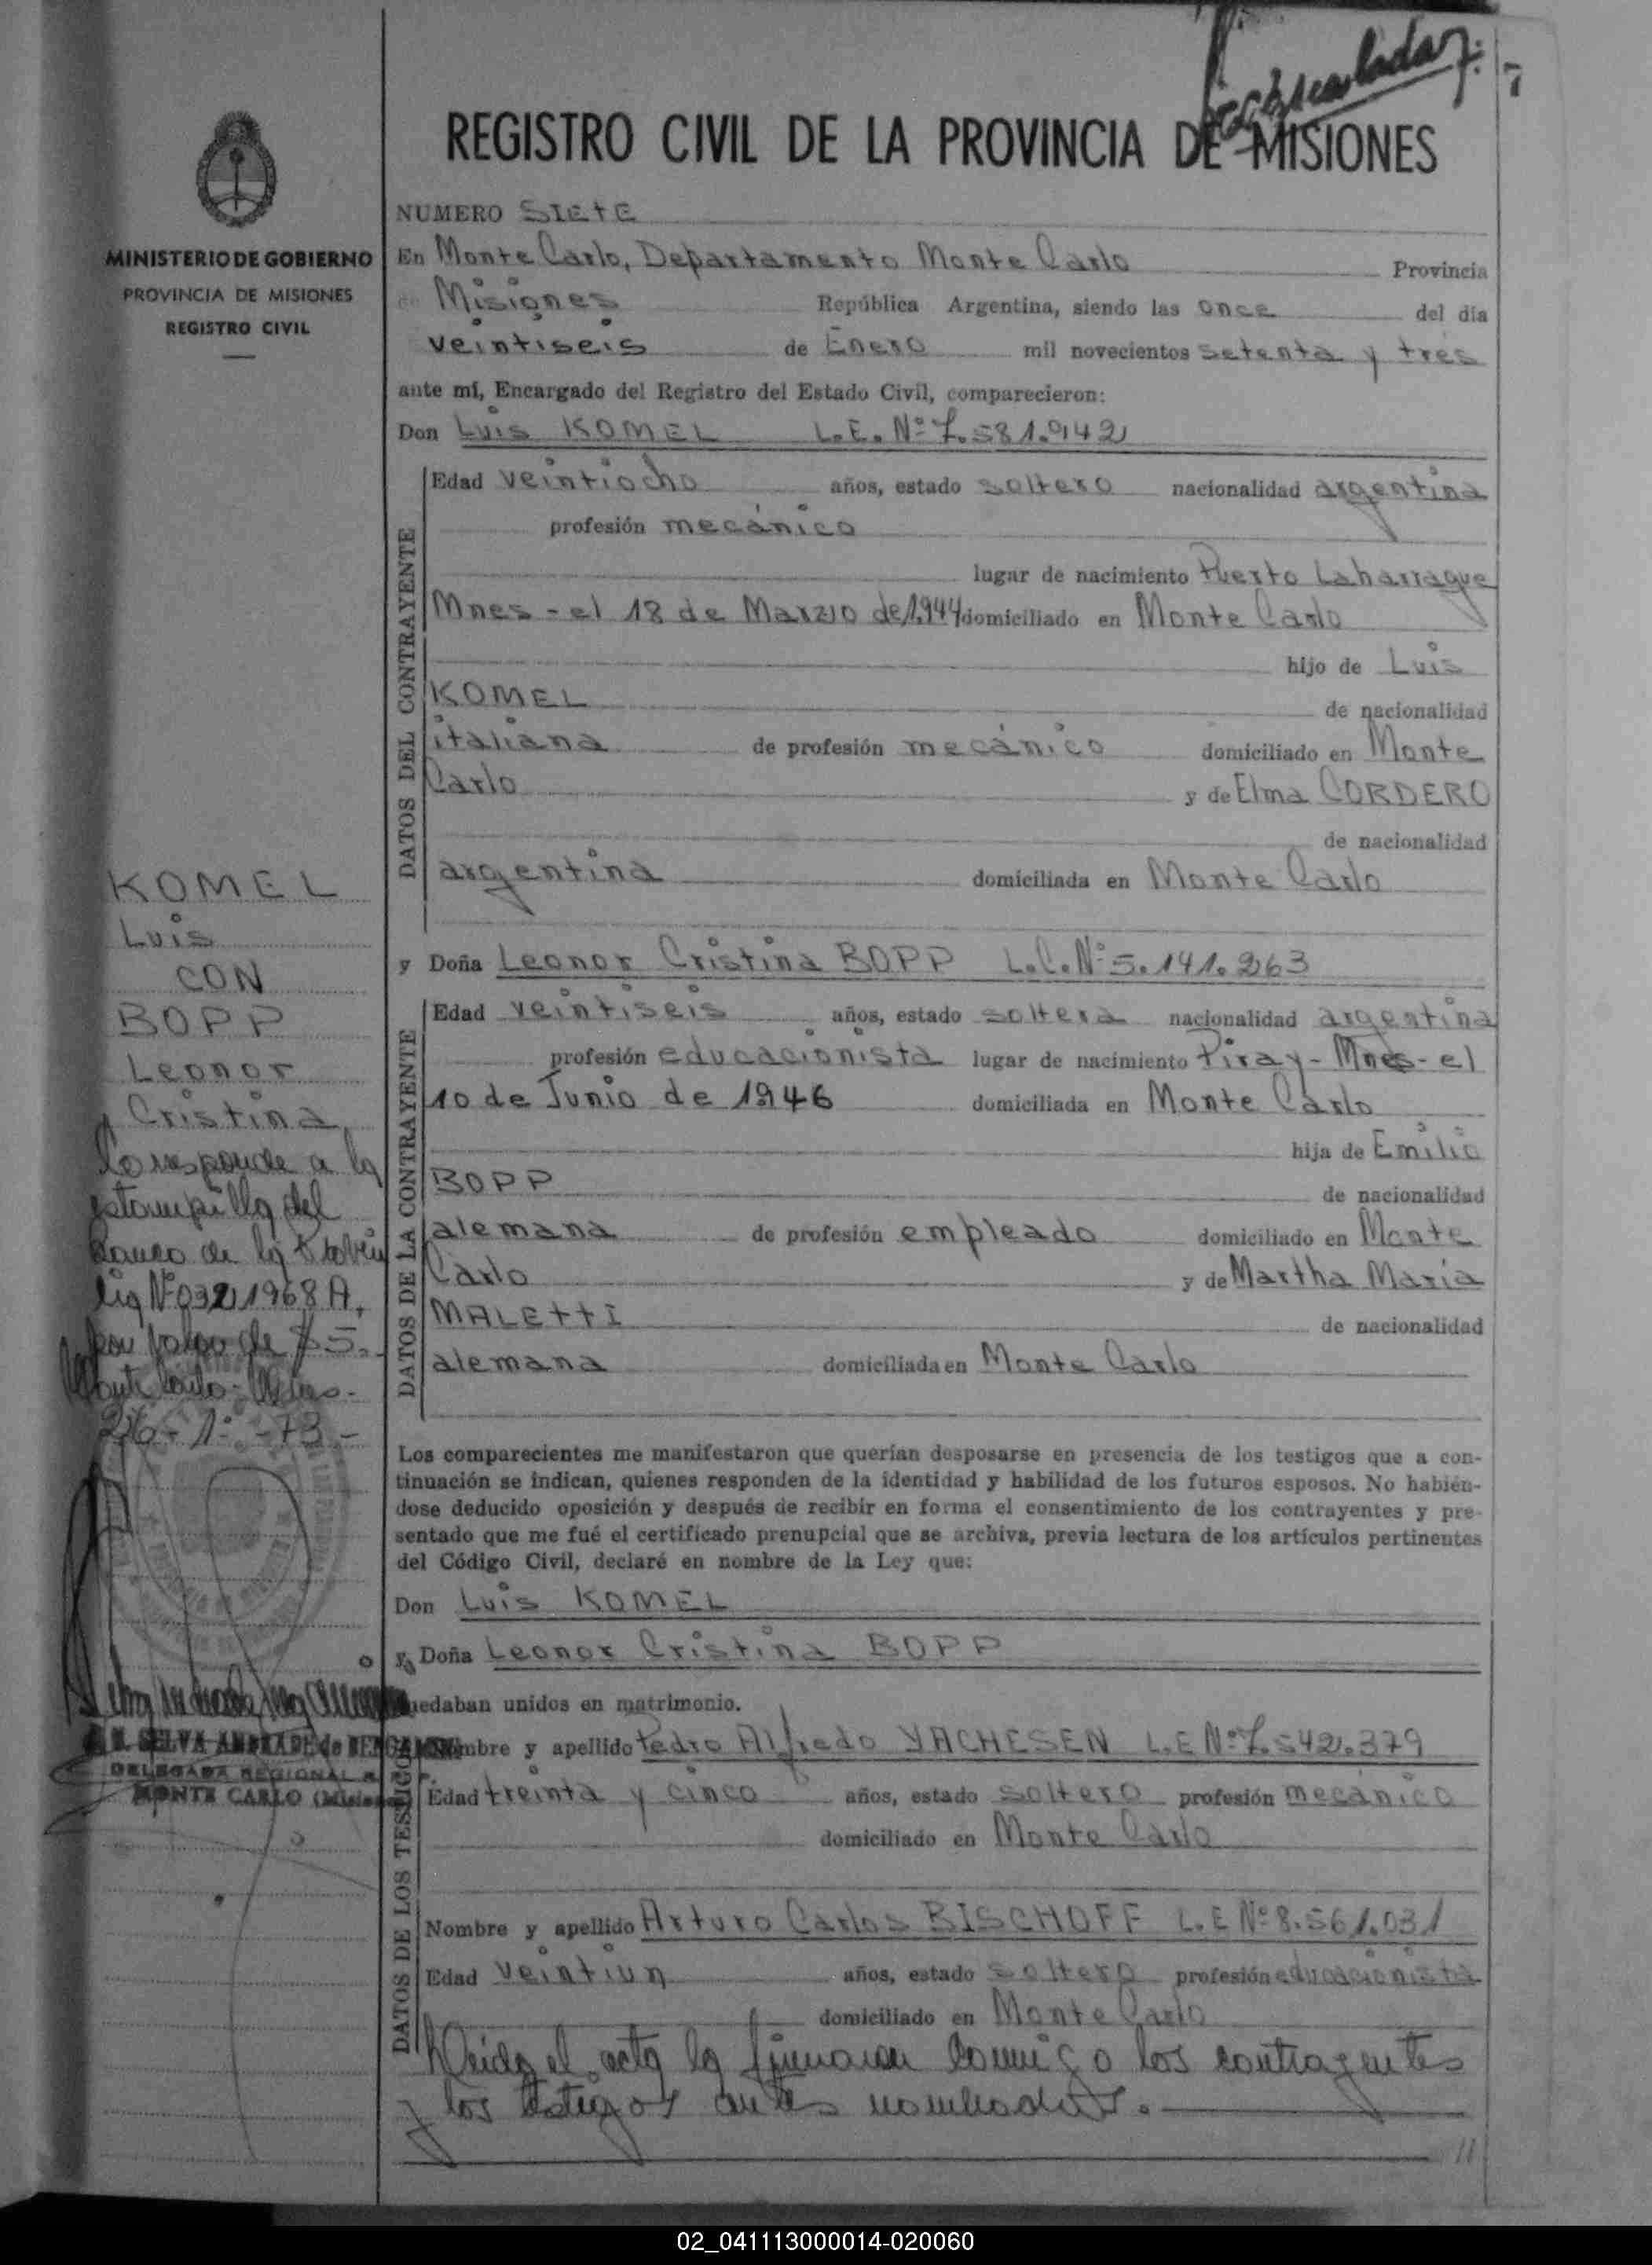 7
REGISTRO CIVIL DE LA PROVINCIA DE MISIONES
MINISTERIO DE GOBIERNO
PROVINCIA DE MISIONES
REGISTRO CIVIL
NUMERO SIETE
En Monte Carlo, Departamento Monte Carlo Provincia
de Misiones República Argentina, siendo las once del día
veintiseis de Enero mil novecientos setenta y tres
ante mí, Encargado del Registro del Estado Civil, comparecieron:
Don Luis KOMEL L.E. Nº 7.581.942
DATOS DEL CONTRAYENTE
Edad veintiocho años, estado soltero nacionalidad argentina
profesión mecánico
lugar de nacimiento Puerto Laharrague
Mnes - el 18 de Marzo de 1.944 domiciliado en Monte Carlo
hijo de Luis
KOMEL de nacionalidad
italiana de profesión mecánico domiciliado en Monte
Carlo y de Elma CORDERO
de nacionalidad
argentina domiciliada en Monte Carlo
y Doña Leonor Cristina BOPP L.C. Nº 5.141.263
DATOS DE LA CONTRAYENTE
Edad veintiseis años, estado soltera nacionalidad argentina
profesión educacionista lugar de nacimiento Piray - Mnes - el
10 de Junio de 1946 domiciliada en Monte Carlo
hija de Emilio
BOPP de nacionalidad
alemana de profesión empleado domiciliado en Monte
Carlo y de Martha Maria
MALETTI de nacionalidad
alemana domiciliada en Monte Carlo
KOMEL
Luis
CON
BOPP
Leonor
Cristina
Corresponde a la
estampilla del
Banco de la
Nº 0321968 A,
por valor de $5.-
Monte Carlo - Mnes.-
26 - 1º - 73 -
Los comparecientes me manifestaron que querían desposarse en presencia de los testigos que a con-
tinuación se indican, quienes responden de la identidad y habilidad de los futuros esposos. No habién-
dose deducido oposición y después de recibir en forma el consentimiento de los contrayentes y pre-
sentado que me fué el certificado prenupcial que se archiva, previa lectura de los artículos pertinentes
del Código Civil, declaré en nombre de la Ley que:
Don Luis KOMEL
y Doña Leonor Cristina BOPP
quedaban unidos en matrimonio.
SELVA ANDRADE de
DELEGADA REGIONAL
MONTE CARLO (Misiones)
DATOS DE LOS TESTIGOS
Nombre y apellido Pedro Alfredo YACHESEN L.E Nº 7.542.379
Edad treinta y cinco años, estado soltero profesión mecánico
domiciliado en Monte Carlo
Nombre y apellido Arturo Carlos BISCHOFF L.E Nº 8.561.031
Edad veintiun años, estado soltero profesión educacionista
domiciliado en Monte Carlo
Leida el acta la firmaron conmigo los contrayentes
y los testigos antes nombrados.
//
02_041113000014-020060